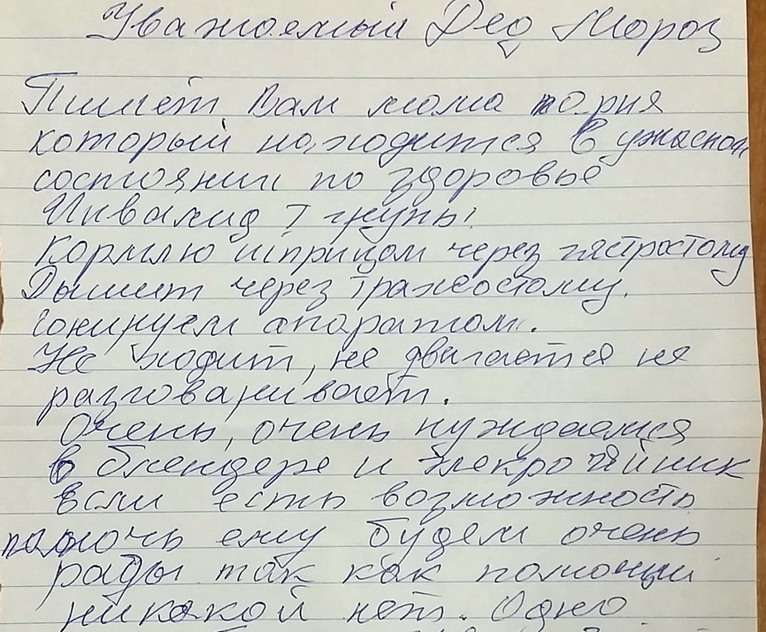 Уважаемый Дед Мороз
Пишет Вам мама парня
который находится в ужасном
состоянии по здоровье
Инвалид I групы.
Кормлю шприцом через гястростому
Дышит через трахеостому.
санируем апаратом.
Не ходит, не двигается не
разговаривает.
Очень, очень нуждаемся
в блендере и элекрочяйник
если есть возможность
памочь ему будем очень
рады так как помощи
никакой нет. Одно